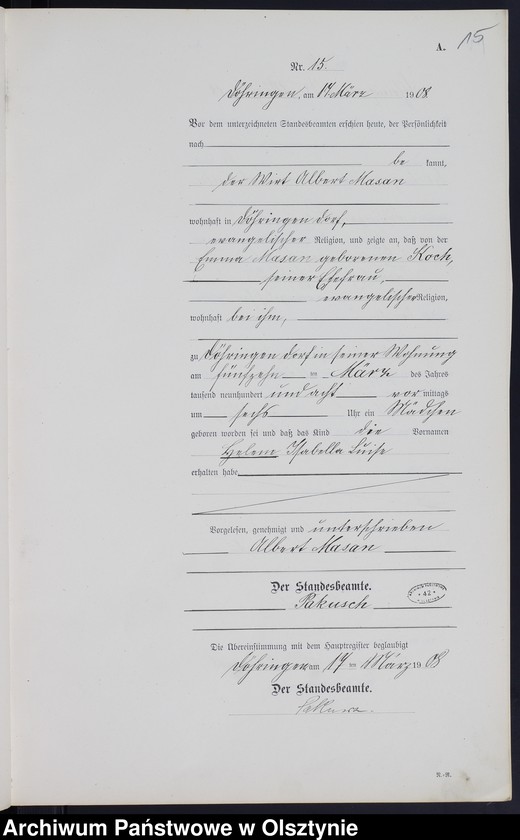 A.
15
Nr. 15.
Döhringen, am 17. März 1908
Vor dem unterzeichneten Standesbeamten erschien heute, der Persönlichkeit
nach
be kannt,
der Wirt Albert Masan
wohnhaft in Döhringen Dorf,
evangelischer Religion, und zeigte an, daß von der
Emma Masan geborenen Koch,
seiner Ehefrau,
evangelischer Religion,
wohnhaft bei ihm,
zu Döhringen Dorf in seiner Wohnung
am fünfzehn ten März des Jahres
tausend neunhundert und acht vor mittags
um sechs Uhr ein Mädchen
geboren worden sei und daß das Kind die Vornamen
Helene Isabella Luise
erhalten habe
Vorgelesen, genehmigt und unterschrieben
Albert Masan
Der Standesbeamte.
42
Die Übereinstimmung mit dem Hauptregister beglaubigt
Döhringen am 17 ten März 1908
Der Standesbeamte.
R.-R.
Archiwum Państwowe w Olsztynie